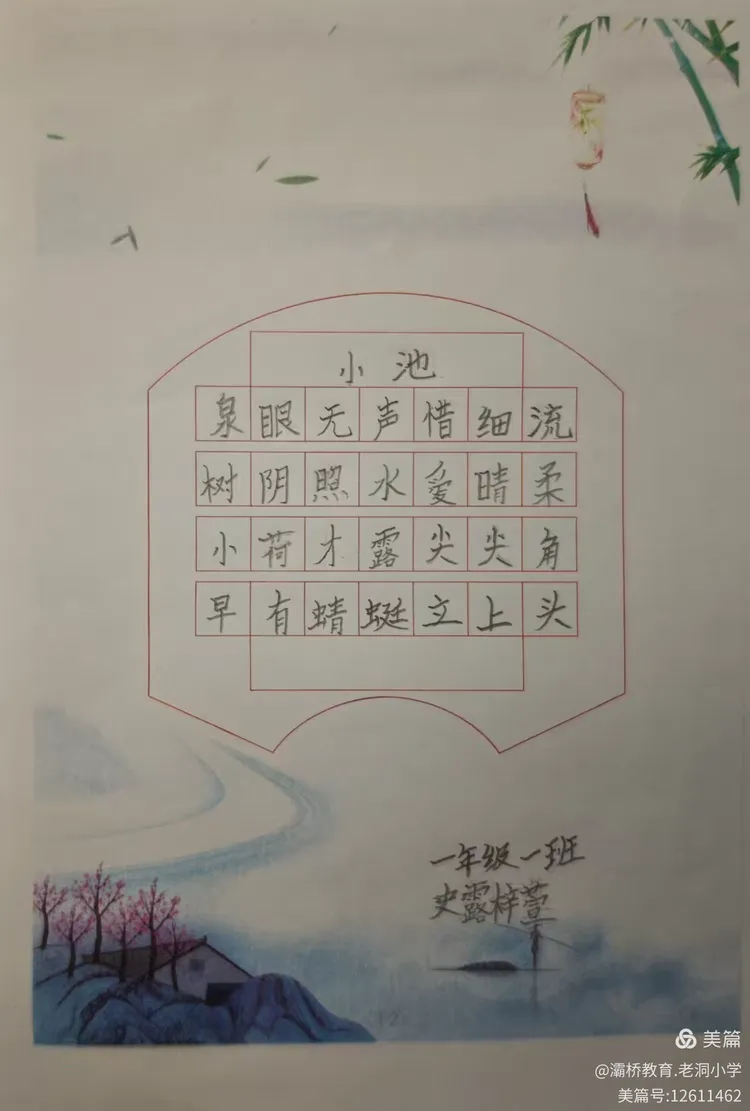 小池
泉眼无声惜细流
树阴照水爱晴柔
小荷才露尖尖角
早有蜻蜓立上头
一年级一班
史露梓萱
美篇
@灞桥教育.老洞小学
美篇号:12611462